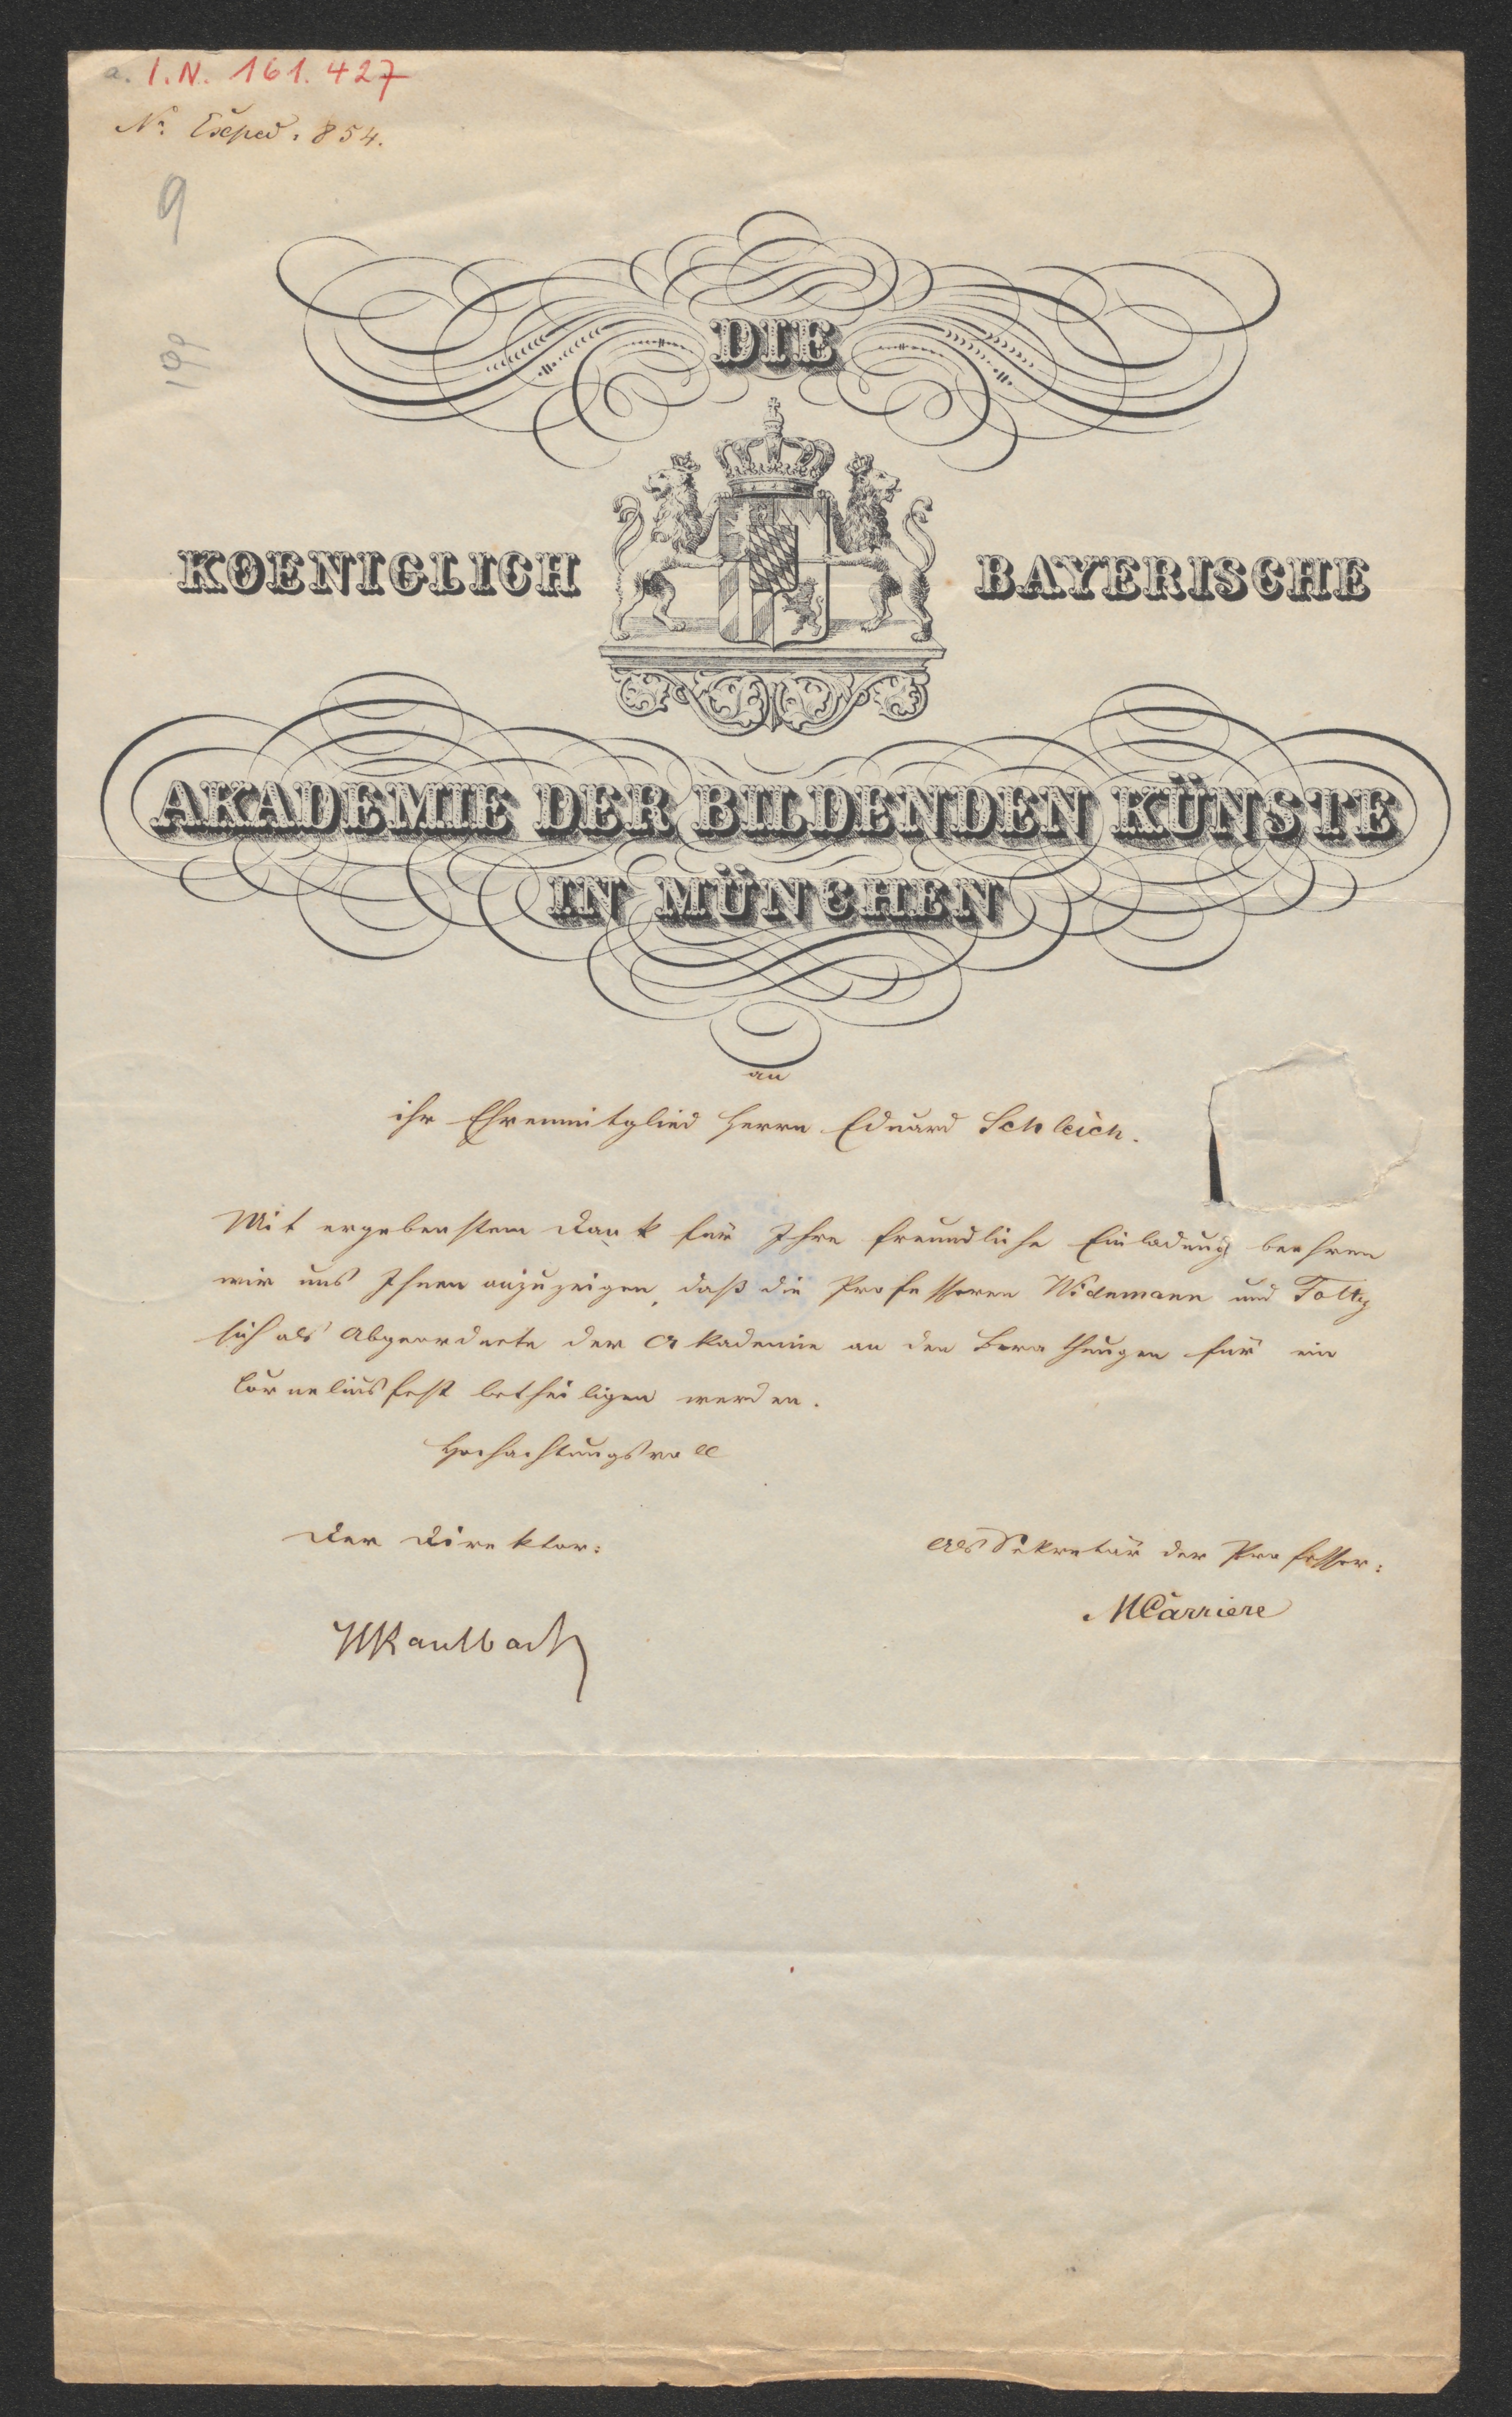 a. I.N. 161.427
No. Exped. 854.
9
199
DIE
KOENIGLICH BAYERISCHE
AKADEMIE DER BILDENDEN KÜNSTE
IN MÜNCHEN
an
ihr Ehrenmitglied Herrn Eduard Schleich.
Mit ergebenstem Dank für Ihre freundliche Einladung beehren
wir uns Ihnen anzuzeigen, daß die Professoren Widnmann und Foltz
sich als Abgeordnete der Akademie an den Berathungen für ein
Corneliusfest betheiligen werden.
Hochachtungsvoll
Der Direktor:
Als Sekretär der Professor:
MCarriere
WKaulbach